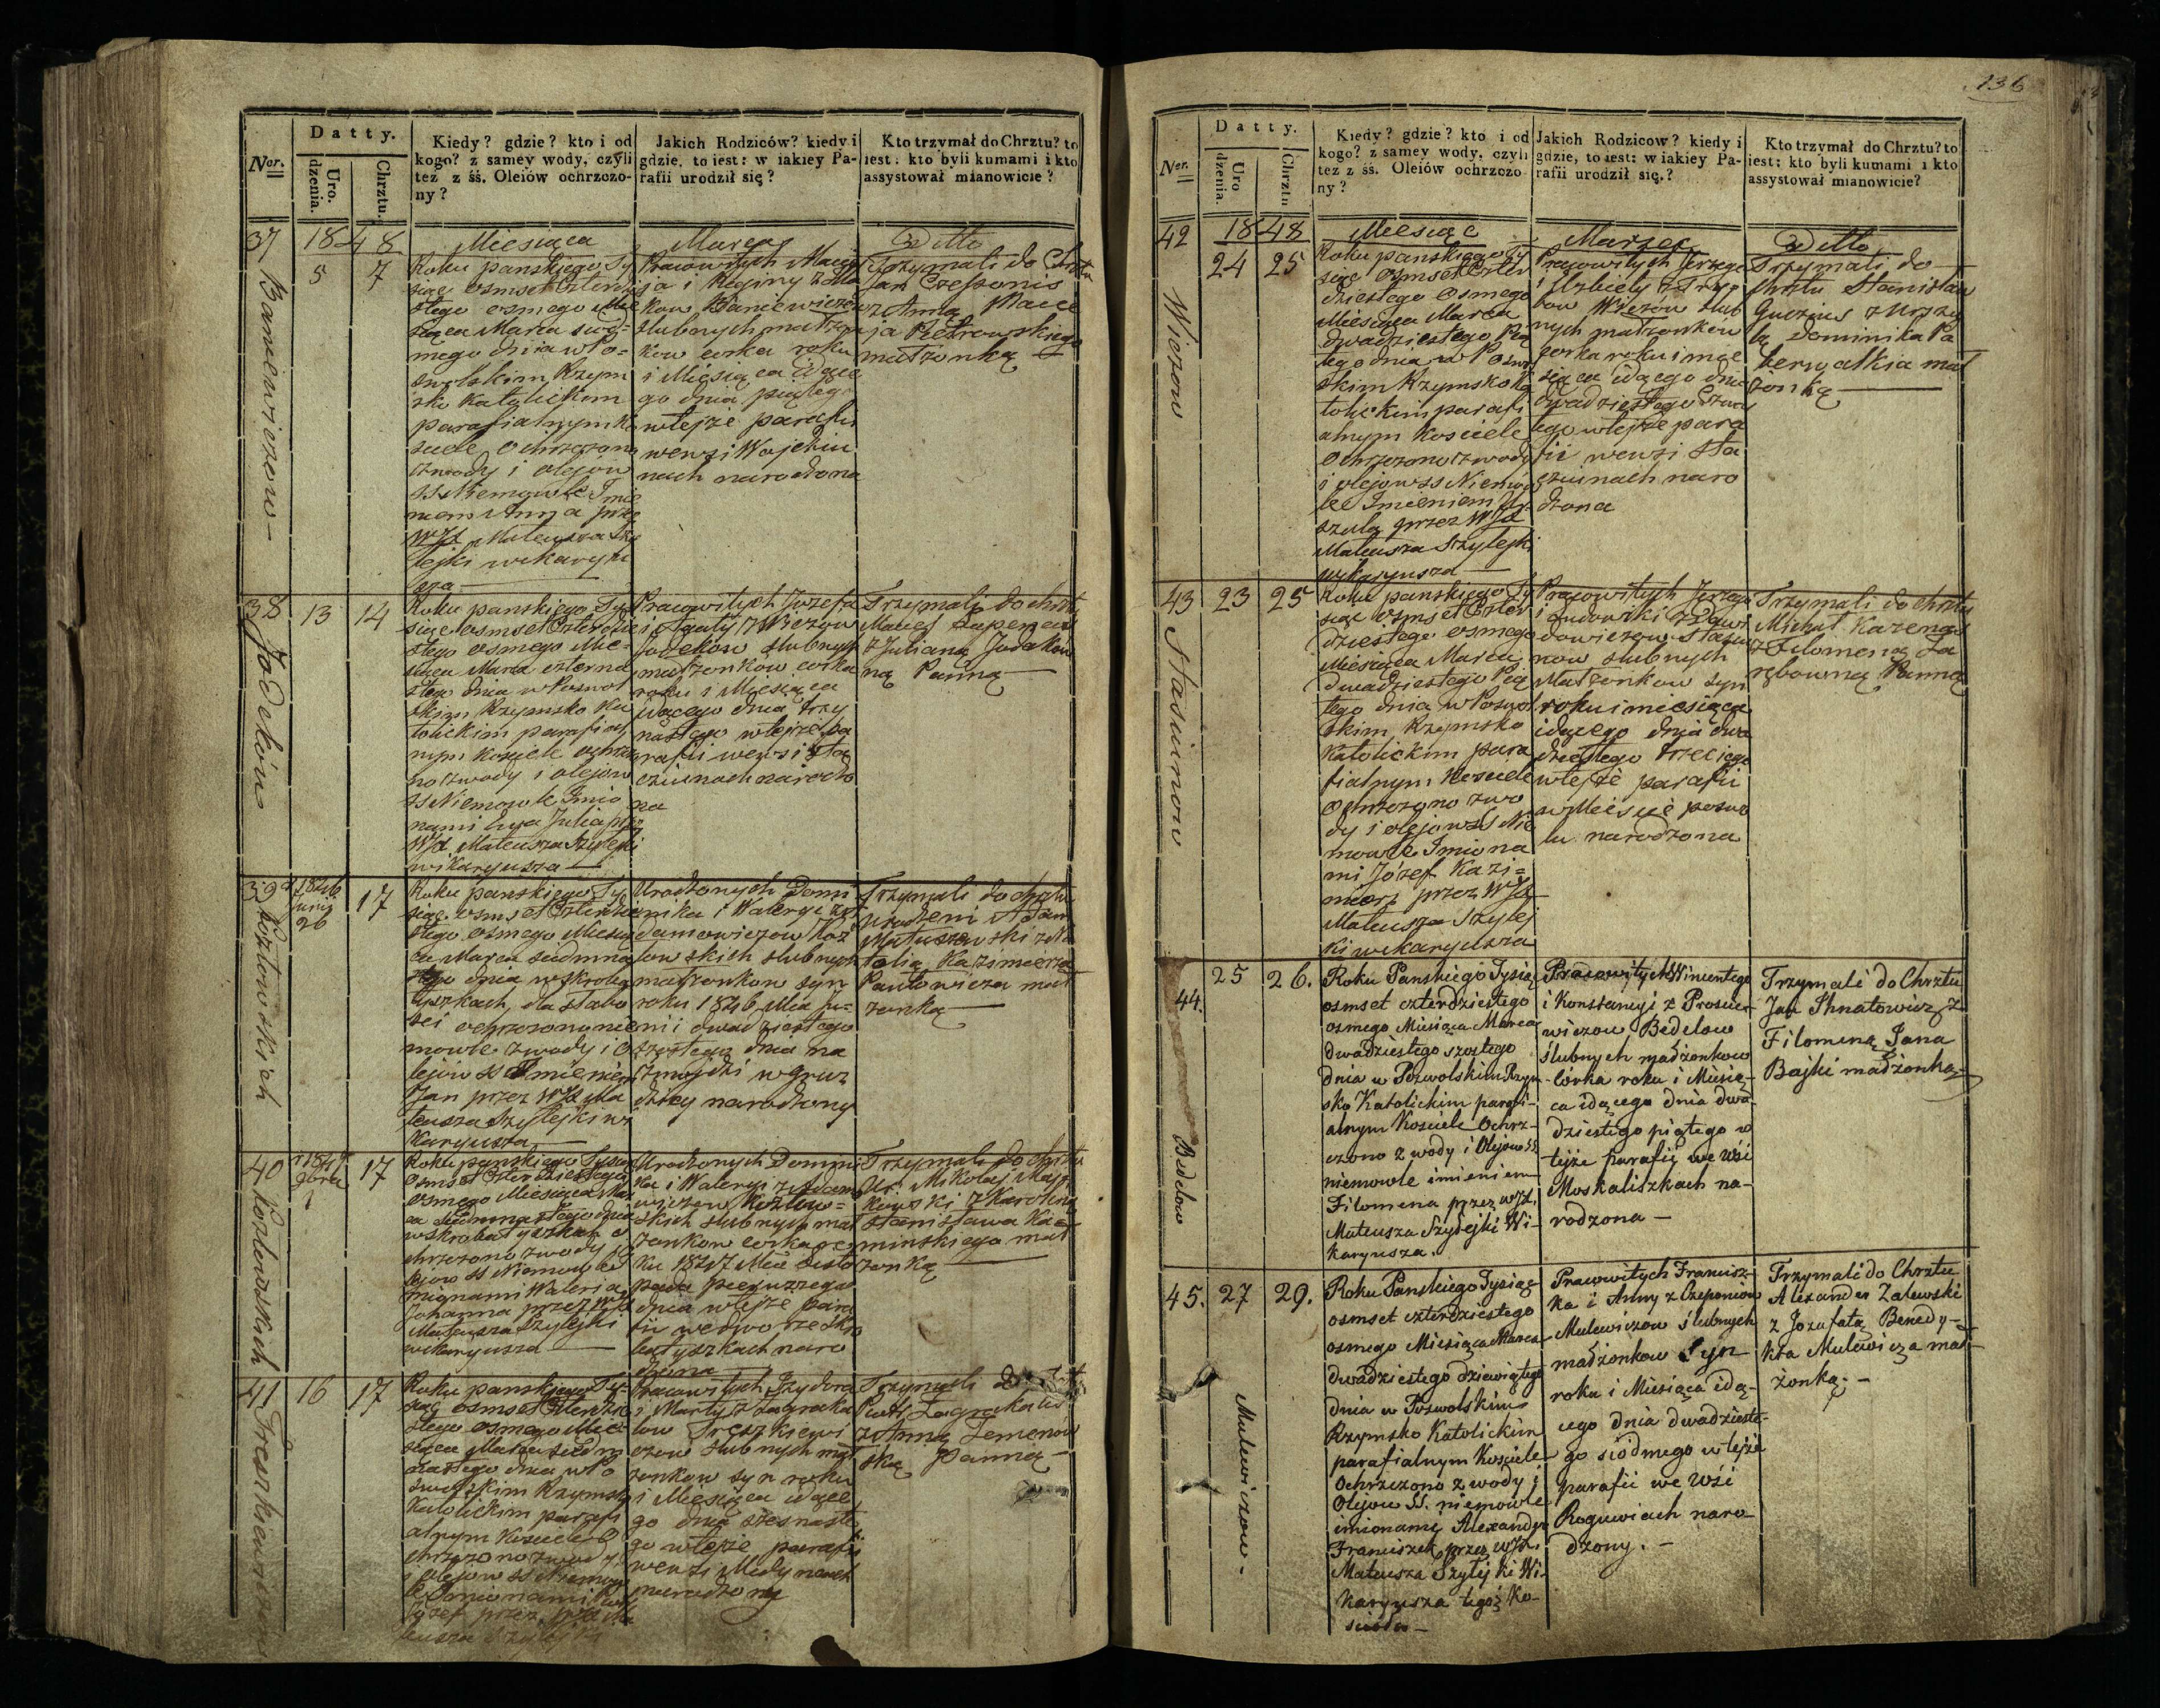 Datty.
Ner.
Uro dzenia.
Chrztu.
Kiedy? gdzie? kto i od
kogo? z samey wody, czyli
też z śś. Oleiów ochrzczo-
ny?
Jakich Rodziców? kiedy i
gdzie, to iest: w iakiey Pa-
rafii urodził się?
Kto trzymał do Chrztu? to
iest: kto byli kumami i kto
assystował mianowicie?
37
18 48
5
7
Miesiąca
Roku panskiego Ty
siąc osmset Czterdzie
stego osmego Mie
siąca Marca siod=
mego dnia w Po=
swolskim Rzym
sko Katolickim
parafialnym Ko
sciele Ochrzczono
z wody i olejow
SS Niemowle Imie
niem Anna przez
WJX Mateusza Szy
lejki wikaryu
sza
Marca
Pracowitych Macie
ja i Reginy
slubnych małżon
kow corka roku
i Miesiąca idące
go dnia piątego
w tejże parafii
we wsi Wojeciu
nach narodzona
Ditto
Trzymali do Chrztu
Jan
z Anną Macie
ja Pietrowskiego
małżonką
38
Jodekow
13
14
Roku panskiego Ty
siąc osmset Czterdzie
stego osmego Mie=
siąca Marca czterna
stego dnia w Poswol
skim Rzymsko Ka
tolickim parafial
nym Kosciele ochrzczo
no z wody i olejow
SS Niemowle Imio
nami Ewa Julia przez
WJX Mateusza Szylejki
wikaryusza
Pracowitych Jozefa
i Agaty z Wiezow
Jodekow slubnych
małżonkow corka
roku i Miesiąca
idącego dnia trzy
nastego w tejże pa
rafii we wsi Sta
cziunach narodzo
na
Trzymali do chrztu
Maciej
z Julianą Jodekow
ną Panną
39
Kozłowskich
1846
Junii
26
17
Roku panskiego Ty
siąc osmset Czterdzie
stego osmego Miesią
ca Marca siedmna
stego dnia w Skroba
tyszkach, dla słabo
sci ochrzczony nie
mowle z wody i o
lejow SS Imieniem
Jan przez WJX Ma
teusza Szylejki wi
karyusza
Urodzonych Domi
nika i Waleryi z A
damowiczow Koz
łowskich slubnych
małżonkow syn
roku 1846 Mca Ju=
nii dwadziestego
szostego dnia na
Zmojdzi w Gruz
dziey narodzony
Trzymali do chrztu
urodzeni Adam
Matuszewski z Na
talią Kazimierza
Pawłowicza mał
żonką
40
Kozłowskich
1847
9bra
1
17
Roku panskiego Tysiąc
osmset Czterdziestego
osmego Miesiąca Mar
ca siedmnastego dnia
w Skrobatyszkach o
chrzczono z wody i o
lejow SS Niemowle I
mionami Waleria
Johanna przez WJX
Mateusza Szylejki
wikaryusza
Urodzonych Domini
ka i Waleryi z Adamo
wiczow Kozłow=
skich slubnych mał
żonkow corka ro
ku 1847 Mca Listo
pada pierwszego
dnia w tejże para
fii we dworze Skro
batyszkach naro
dzona
Trzymali do chrztu
Ur: Mikołaj
z Karoliną
Stanisława Ka
minskiego mał
żonką
41
Treszkiewiczow
16
17
Roku panskiego Ty=
siąc osmset Czterdzie
stego osmego Mie=
siąca Marca siedm
nastego dnia w Po
swolskim Rzymsko
Katolickim parafi
alnym Kosciele O
chrzczono z wody
i olejow SS Niemow
le Imionami Piotr
Jozef przez WJX Ma
teusza Szylejki
Pracowitych Izydora
i Marty z Zagraka
low Treszkiewi
czow slubnych mał
żonkow syn roku
i Miesiąca idące
go dnia szesnaste
go w tejże parafii
we wsi
narodzony
Trzymali do chrztu
Piotr Zagrakalis
z Anną Zemenow
ską Panną
136
Datty.
Ner.
Uro dzenia.
Chrztu
Kiedy? gdzie? kto i od
kogo? z samey wody, czyli
też z śś. Oleiów ochrzczo
ny?
Jakich Rodziców? kiedy i
gdzie, to iest: w iakiey Pa-
rafii urodził się?
Kto trzymał do Chrztu? to
iest: kto byli kumami i kto
assystował mianowicie?
42
Wiezow
18 48
24
25
Miesiąc
Roku panskiego Ty
siąc osmset Czter
dziestego Osmego
Miesiąca Marca
dwadziestego Pią
tego dnia w Poswol
skim Rzymsko Ka
tolickim parafi
alnym Kosciele
Ochrzczono z wody
i olejow SS Niemow
le Imieniem Ur
szulą przez WJX
Mateusza Szylejki
wikaryusza
Marzec
Pracowitych Jerzego
i Elzbiety
Wiezow slub
nych małżonkow
corka roku i mie
siąca idącego dnia
dwadziestego czwar
tego w tejże para
fii we wsi Sta
cziunach naro
dzona
Ditto
Trzymali do
Chrztu Stanisław
Guczius z Urszu
lą Dominika
mał
żonką
43
Stasiunow
23
25
Roku panskiego Ty
siąc osmset Czter
dziestego osmego
Miesiąca Marca
dwadziestego Pią
tego dnia w Poswol
skim Rzymsko
Katolickim para
fialnym Kosciele
Ochrzczono z wo
dy i olejow SS Nie
mowle Imiona
mi Józef Kazi=
mierz przez WJX
Mateusza Szylej
ki wikaryusza
Pracowitych Jerzego
i Ludwiki z Daw
dowiczow Stasiu
now slubnych
Małżonkow syn
roku i miesiąca
idącego dnia dwa
dziestego trzeciego
w tejże parafii
w Miescie poswo
lu narodzona
Trzymali do chrztu
Michał Kazenas
z Filomeną Za
rębowną Panną
44.
Bedelow
25
26.
Roku Panskiego Tysiąc
osmset czterdziestego
osmego Miesiąca Marca
dwadziestego szostego
dnia w Poswolskim Rzym-
sko Katolickim parafi-
alnym Kosciele Ochrz-
czono z wody i Olejow SS
niemowle imieniem
Filomena przez WJX.
Mateusza Szylejki Wi-
karyusza.
Pracowitych Wincentego
i Konstancyi z Prosce-
wiczow Bedelow
ślubnych małżonkow
córka roku i Miesią-
ca idącego dnia dwa-
dziestego piątego w
tejże parafii we Wśi
Moskaliszkach na-
rodzona —
Trzymali do Chrztu
Jan Ihnatowicz z
Filomeną Jana
Bajki madżonką
45.
Mulewiczow.
27
29.
Roku Panskiego Tysiąc
osmset czterdziestego
osmego Miesiąca Marca
dwadziestego dziewiątego
dnia w Poswolskim
Rzymsko Katolickim
parafialnym Kosciele
Ochrzczono z wody i
Olejow SS. niemowle
imionami Alexander
Franciszek przez WJX.
Mateusza Szylejki Wi-
karyusza tegoż Ko-
scioła —
Pracowitych Francisz-
ka i Anny z Czeponiow
Mulewiczow ślubnych
madżonkow Syn
roku i Miesiąca idą-
cego dnia dwadzieste-
go siodmego w tejże
parafii we Wśi
Roguwiach naro-
dzony. —
Trzymali do Chrztu
Alexander Zalewski
z Jozefatą Benedy-
kta Mulewicza mał-
żonką. —